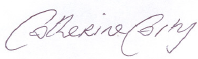 Catherine Corry